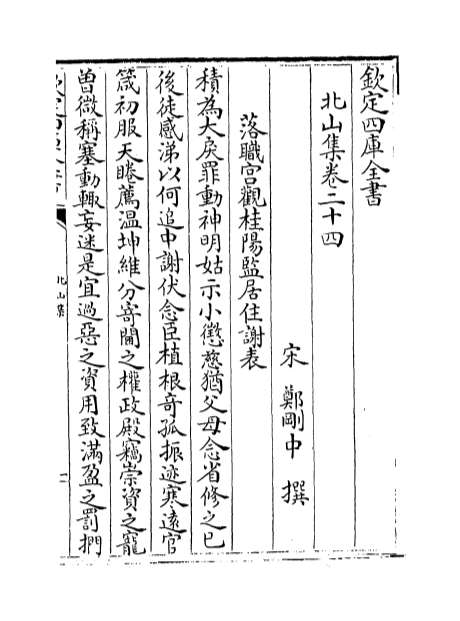 欽定四庫全書
北山集卷二十四
宋 鄭剛中 撰
落職宫觀桂陽監居住謝表
積為大戾罪動神明姑示小懲慈猶父母念省修之已
後徒感涕以何追中謝伏念臣植根奇孤振迹寒逺官
箴初服天睠薦温坤維分寄閫之權政殿竊崇資之寵
曾微稱塞動輒妄迷是宜過惡之資用致滿盈之罰捫
北山集